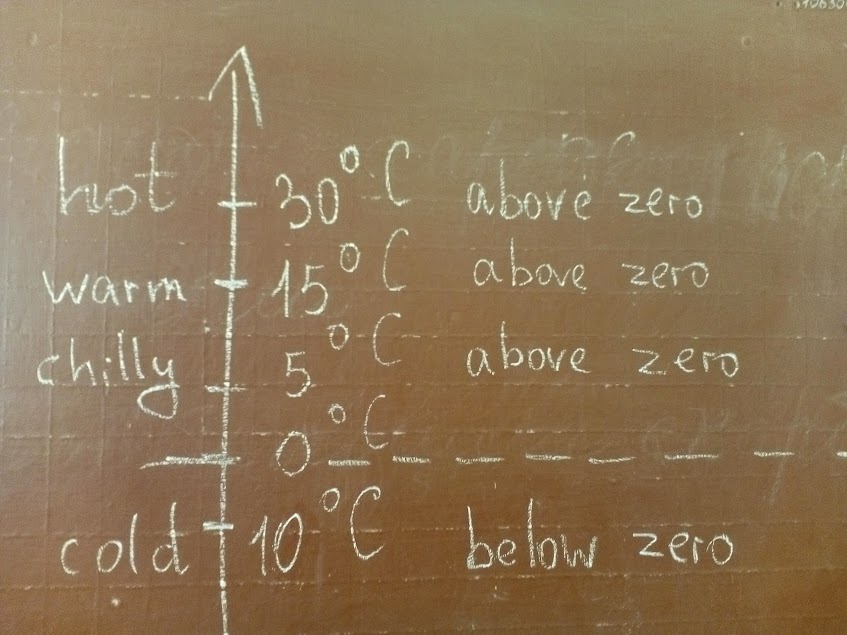 hot 30°C above zero
warm 15°C above zero
chilly 5°C above zero
0°C
cold 10°C below zero